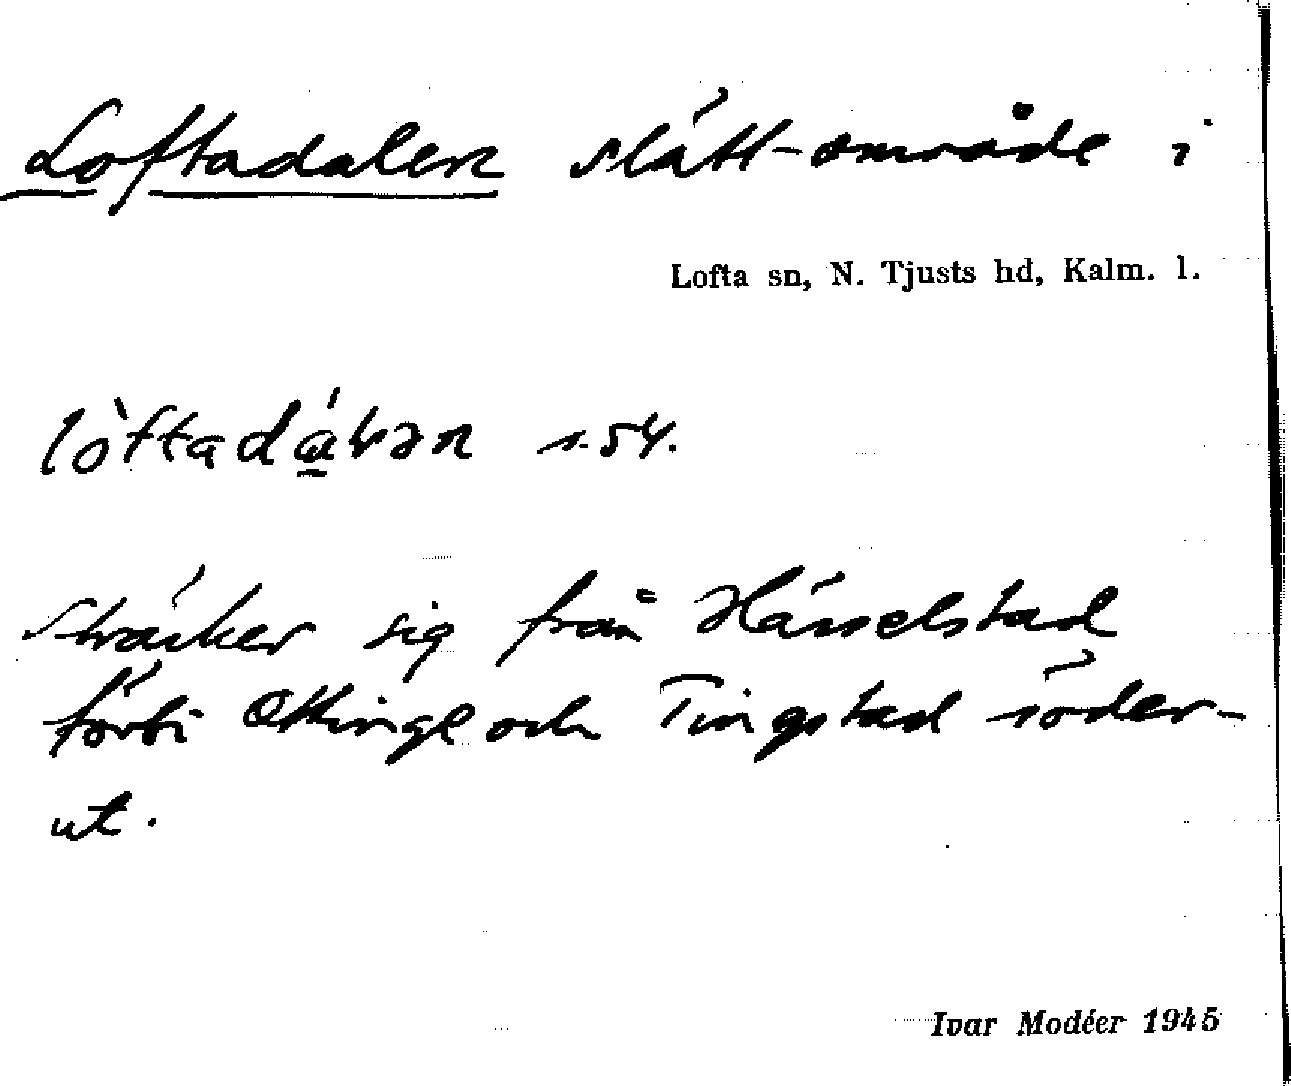 Loftadalen slätt-område i
Lofta sn, N. Tjusts hd, Kalm. l.
s. 54.
Sträcker sig från Hässelstad
förbi Ottinge och Tingstad söder-
ut.
Ivar Modéer 1945